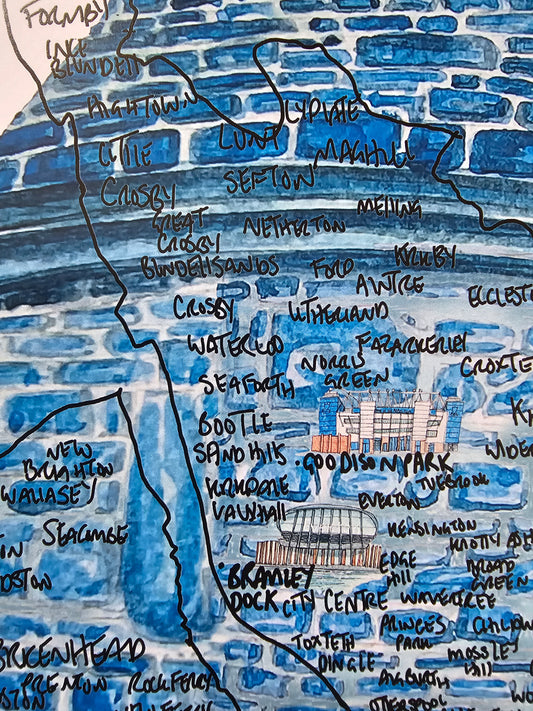 FORMBY
INCE
BLUNDELL
HIGHTOWN
LYDIATE
LITTLE
CROSBY
LUNT
MAGHULL
SEFTON
GREAT
CROSBY
NETHERTON
MELLING
BLUNDELLSANDS
FORD
KIRKBY
AINTRE
ECCLESTO
CROSBY
LITHERLAND
WATERLOO
FAZAKERLEY
NORRIS
GREEN
CROXTE
SEAFORTH
BOOTLE
SANDHILLS
·GOODISON PARK
WIDER
NEW
BRIGHTON
WALLASEY
KIRKDALE
VAUXHALL
TUEBROOK
EVERTON
KENSINGTON
KNOTTY ASH
SEACOMBE
EDGE
HILL
BROAD
GREEN
·BRAMLEY
DOCK
CITY CENTRE
WAVERTREE
PRINCES
PARK
CHILDW
TOXTETH
DINGLE
MOSSLEY
HILL
AIGBURTH
OTTERSPOOL
BIRKENHEAD
PRENTON
ROCKFERRY